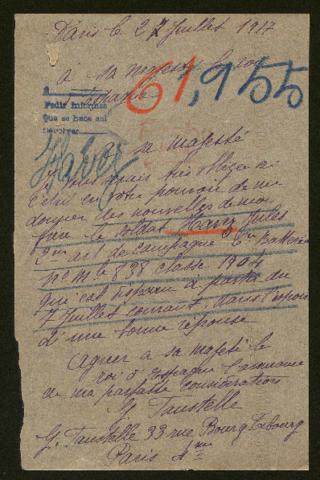 Paris le 27 Juillet 1917
à sa majesté le roi
d'Espagne
61,955
A
Pedir informes
Que se hace así
a sa majesté
Je vous serais très obligée si
c'était en votre pouvoir de me
donner des nouvelles de mon
frère le soldat Henry Jules
art de campagne Batterie
No Mle 838 classe 1904
qui est disparu à partir du
7 Juillet courant, dans l'espoir
d'une bonne réponse
Agréer a sa majesté le
roi d'Espagne l'assurance
de ma parfaite considération
G. Taustelle
G. Taustelle 33 rue Bourg Tibourg
Paris 4me